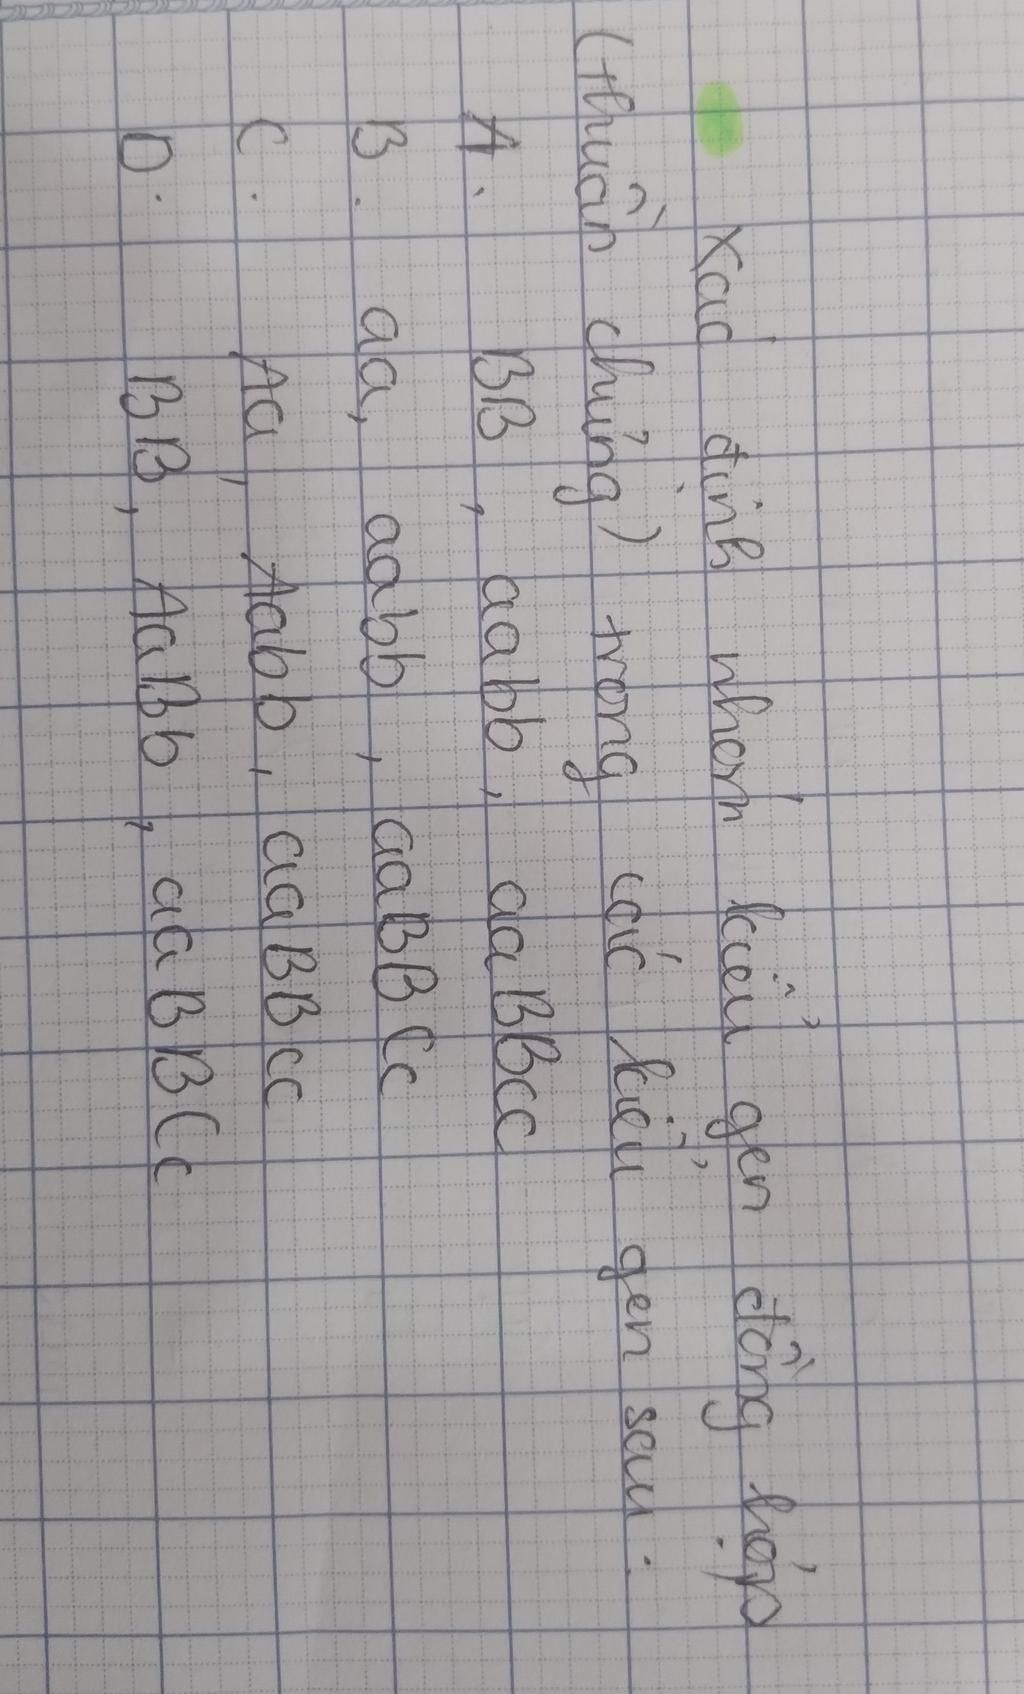 Xác định nhóm kiểu gen đồng hợp
(thuần chủng) trong các kiểu gen sau:
A. BB, aabb, aaBBcc
B. aa, aabb, aaBBCc
C. Aa, Aabb, aaBBcc
D. BB, AaBb, aaBBCc